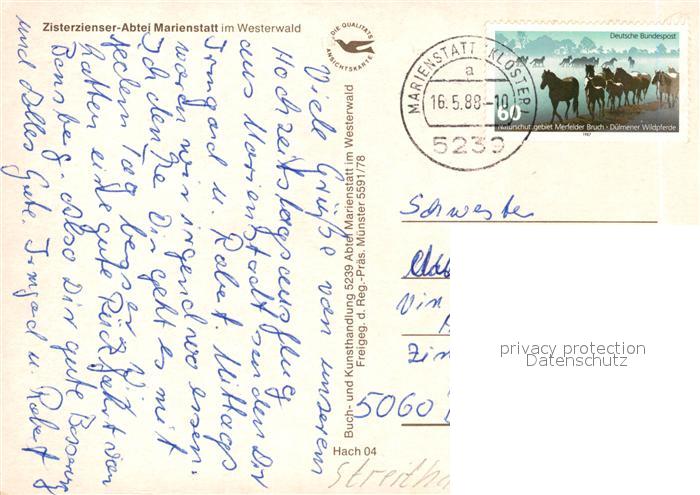 Zisterzienser-Abtei Marienstatt im Westerwald
DIE QUALITÄTS
ANSICHTSKARTE
Viele Grüße von unserem
Hochzeitstagsausflug
aus Marienstadt senden Dir
Irmgard u. Robert. Mittags
waren wir irgendwo essen.
Ich denke Dir geht es mit
jedem Tag besser. Wir
hatten eine gute Rückfahrt von
Also Dir gute Besserung
und alles Gute. Irmgard u. Robert
Buch- und Kunsthandlung 5239 Abtei Marienstatt im Westerwald
Freigeg. d. Reg.-Präs. Münster 5591/78
Hach 04
MARIENSTATT (KLOSTER)
a
16.5.88-10
5239
Deutsche Bundespost
60
Naturschutzgebiet Merfelder Bruch · Dülmener Wildpferde
1987
Schwester
Vin
5060
privacy protection
Datenschutz